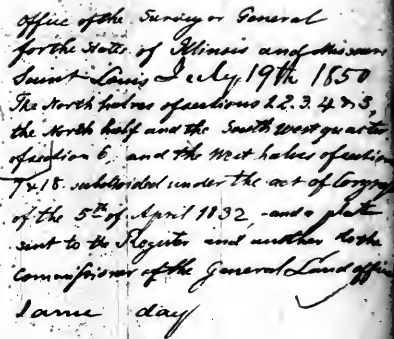 Office of the Surveyor General
for the States of Illinois and Missouri
Saint Louis July 19th 1850
The North halves of sections 2.2.3.4 & 5,
the North half and the South West quarter
of section 6, and the West halves of section
7 & 18 subdivided under the act of Congress
of the 5th of April 1832, and a plat
sent to the Register and another to the
Commissioner of the General Land office
same day